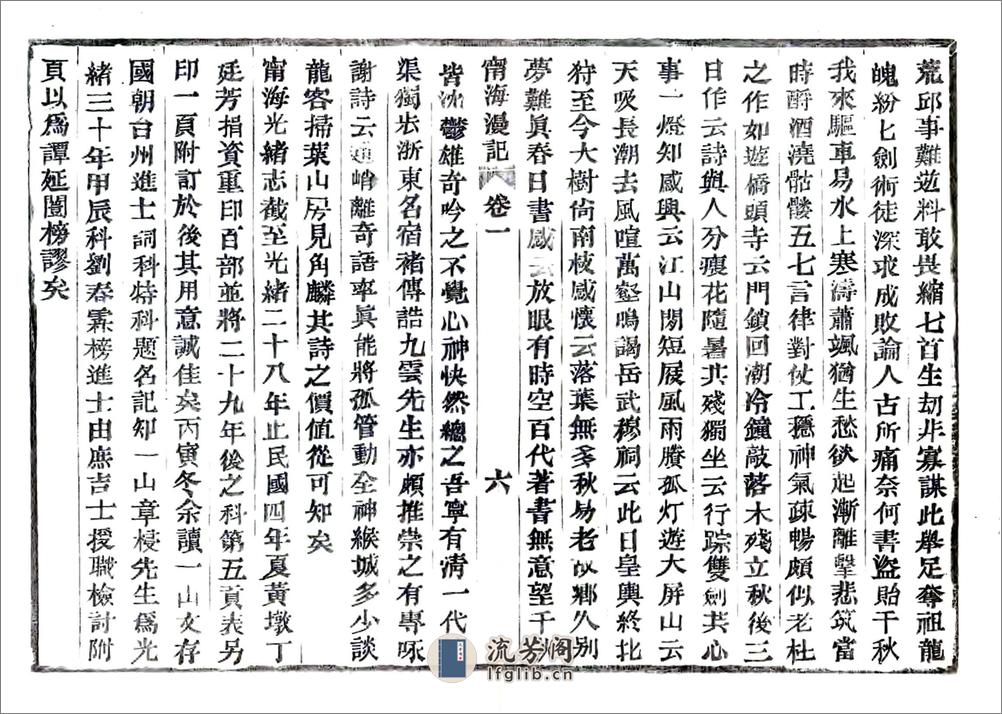 荒邱事難遊料敢畏縮七首生刧非寡謀此舉足奪祖龍
魄紛七劍術徒深求成敗論人古所痛奈何書盜貽千秋
我來驅車易水上寒濤蕭颯猶生愁欲起漸離擊悲筑當
時酹酒澆骷髏五七言律對仗工穩神氣疎暢頗似老杜
之作如遊橋頭寺云門鎖回潮冷鐘敲落木殘立秋後三
日作云詩與人分瘦花隨暑共殘獨坐云行踪雙劍共心
事一燈知感興云江山閱短屐風雨賸孤灯遊大屏山云
天吸長潮去風喧萬壑鳴謁岳武穆祠云此日皇輿終北
狩至今大樹尙南枝感懷云落葉無多秋易老故鄉久別
夢難眞春日書感云放眼有時空百代著書無意望千
甯海漫記 卷一 六
皆沈鬱雄奇吟之不覺心神快然總之吾寧有淸一代
渠獨步浙東名宿褚傳誥九雲先生亦頗推崇之有專咏
謝詩云 峭離奇語率眞能將孤管動全神緱城多少談
龍客掃葉山房見角麟其詩之價值從可知矣
甯海光緒志截至光緒二十八年止民國四年夏黃墩丁
廷芳捐資重印百部並將二十九年後之科第五貢表另
印一頁附訂於後其用意誠佳矣丙寅冬余讀一山文存
國朝台州進士詞科特科題名記知一山章梫先生爲光
緒三十年甲辰科劉春霖榜進士由庶吉士授職檢討附
頁以爲譚延闓榜謬矣
流芳阁
lfglib.cn